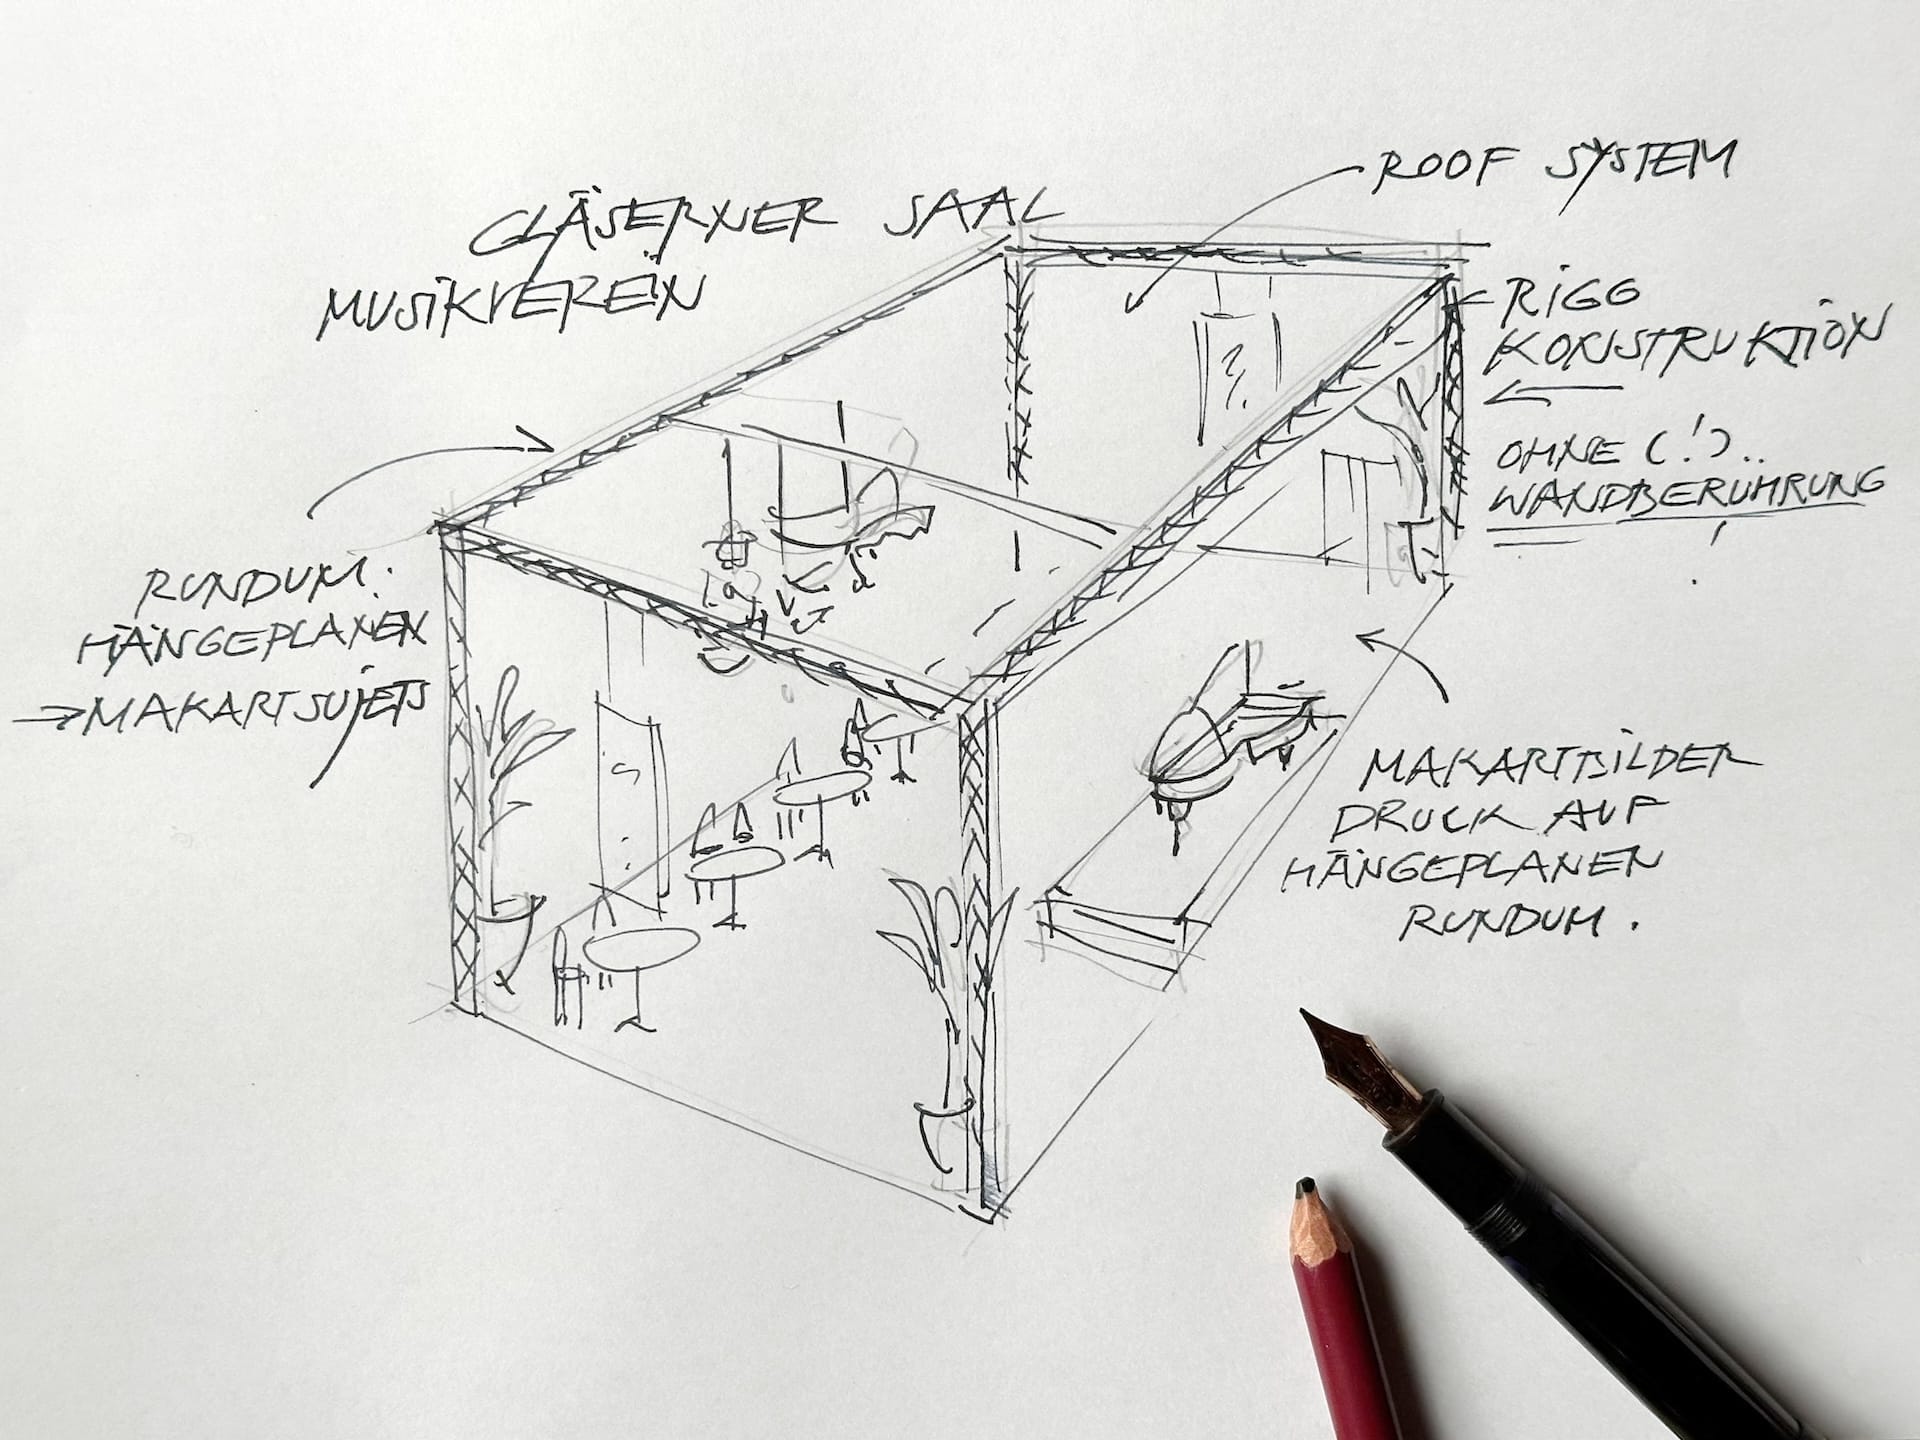 GLÄSERNER SAAL
MUSIKVEREIN
ROOF SYSTEM
RIGG
KONSTRUKTION
OHNE (!)..
WANDBERÜHRUNG
!
RUNDUM:
HÄNGEPLANEN
→MAKARTSUJETS
MAKARTBILDER
DRUCK AUF
HÄNGEPLANEN
RUNDUM.